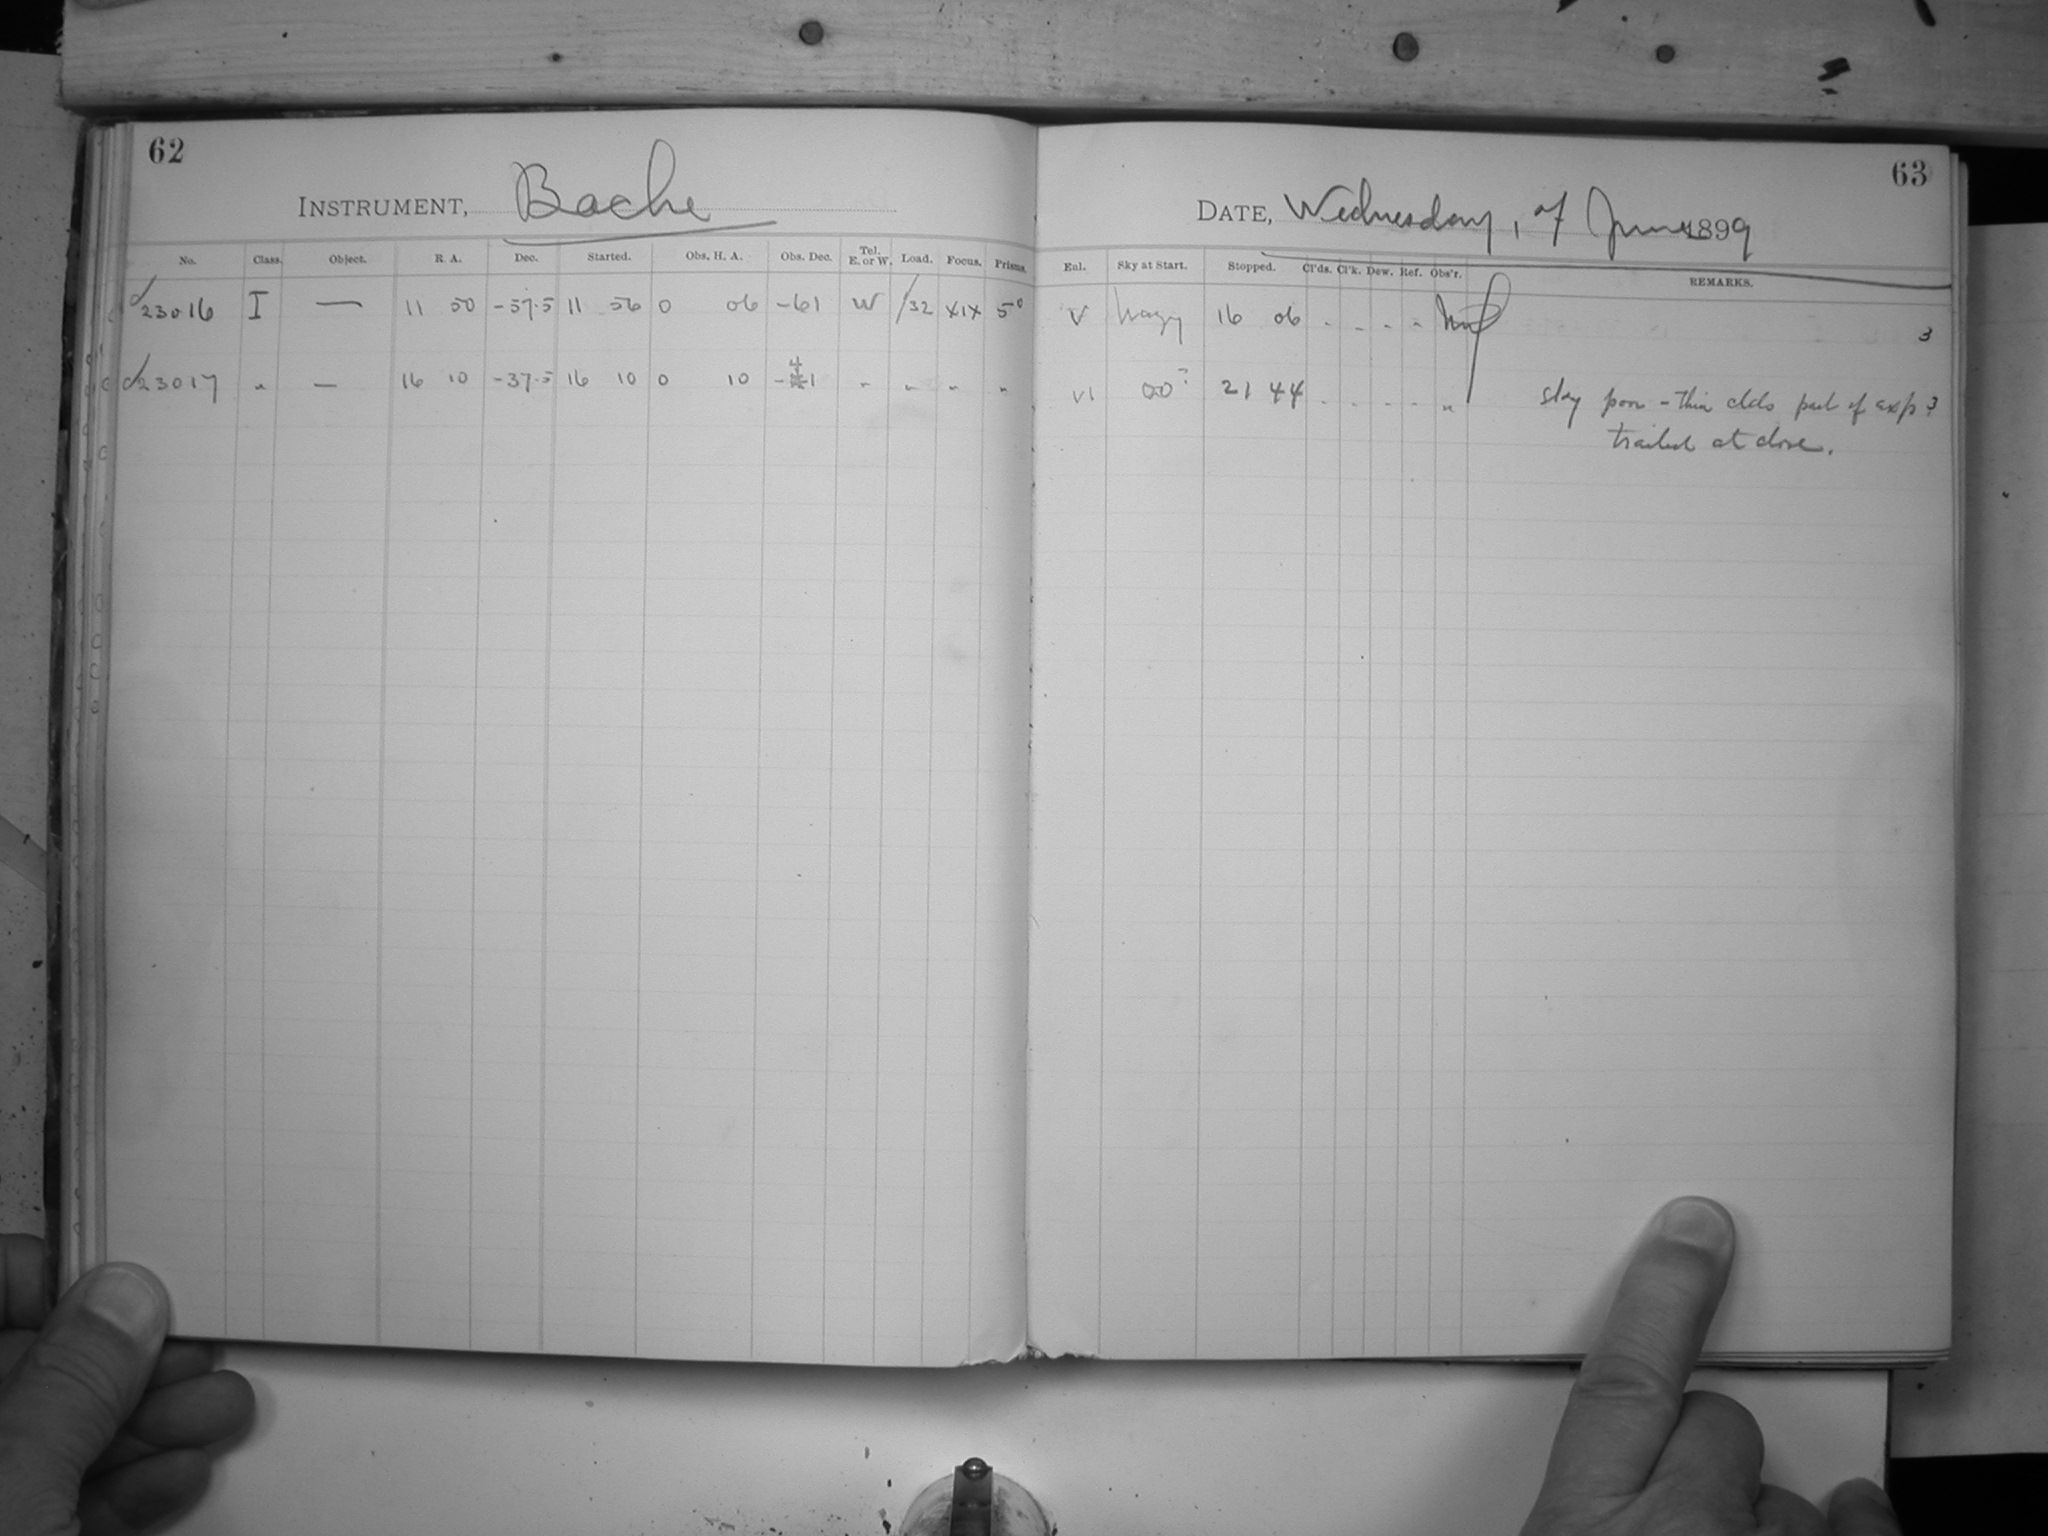 62
INSTRUMENT, Bache
No. Class. Object. R. A. Dec. Started. Obs. H. A. Obs. Dec. Tel. E. or W. Load. Focus. Prisms.
23016 I — 11 50 -57.5 11 56 0 06 -61 W /32 XIX 5°
23017 " — 16 10 -37.5 16 10 0 10 -41 " " " "
63
DATE, Wednesday, 7 June 1899
Enl. Sky at Start. Stopped. Cl'ds. Cl'k. Dew. Ref. Obs'r. REMARKS.
V hazy 16 06 . - - - 3
VI 00? 21 44 . - - - - " sky poor - thin clds part of exp 3
trailed at close.